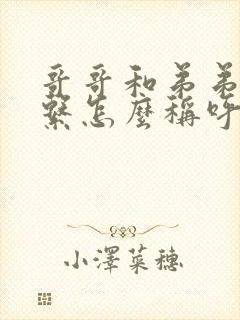 哥哥和弟弟
繫怎麼稱呼
小澤菜穗